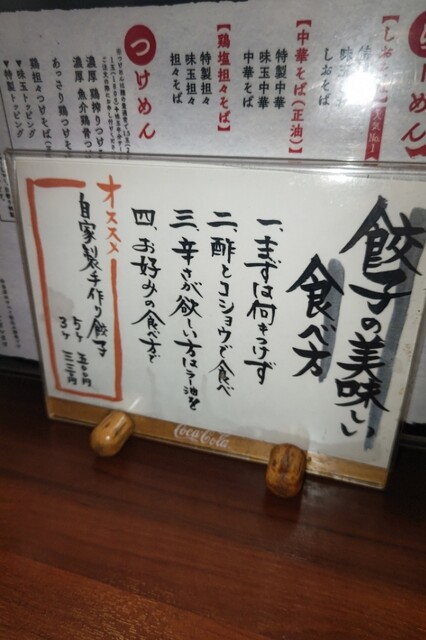 餃子の美味しい
食べ方
一、まずは何もつけず
二、酢とコショウで食べ
三、辛さが欲しい方はラー油を
四、お好みの食べ方で
オススメ
自家製手作り餃子
5ヶ 五〇〇円
3ヶ 三三〇円
Coca-Cola
人気No.1
しおそば
【中華そば(正油)】
特製中華
味玉中華
中華そば
【鶏塩担々そば】
特製担々
味玉担々
担々そば
つけめん
濃厚 鶏搾りつけ
濃厚 魚介鶏骨つ
あっさり鶏つけそ
鶏担々つけそ
▼味玉トッピング
▼特製トッピング